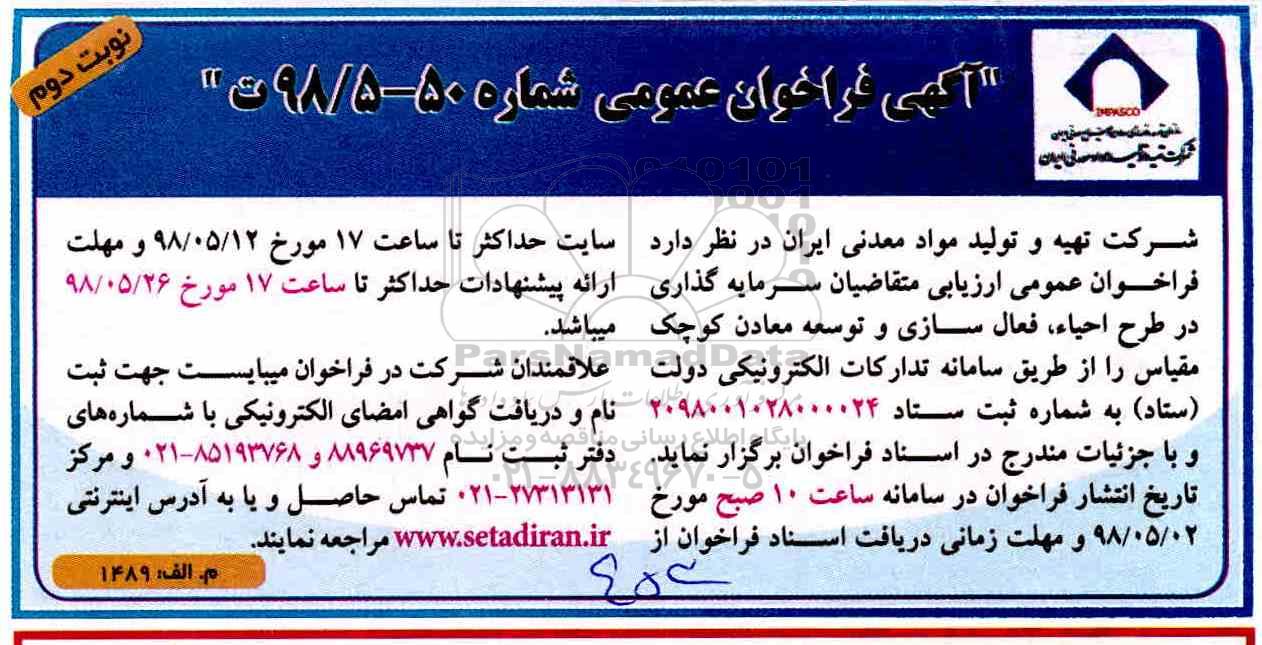 نوبت دوم
"آگهی فراخوان عمومی شماره ۵۰-۹۸/۵ ت"
IMPASCO
شرکت تهیه و تولید مواد معدنی ایران
شرکت تهیه و تولید مواد معدنی ایران در نظر دارد
فراخوان عمومی ارزیابی متقاضیان سرمایه گذاری
در طرح احیاء، فعال سازی و توسعه معادن کوچک
مقیاس را از طریق سامانه تدارکات الکترونیکی دولت
(ستاد) به شماره ثبت ستاد ۲۰۹۸۰۰۱۰۲۸۰۰۰۰۲۴
و با جزئیات مندرج در اسناد فراخوان برگزار نماید.
تاریخ انتشار فراخوان در سامانه ساعت ۱۰ صبح مورخ
۹۸/۰۵/۰۲ و مهلت زمانی دریافت اسناد فراخوان از
سایت حداکثر تا ساعت ۱۷ مورخ ۹۸/۰۵/۱۲ و مهلت
ارائه پیشنهادات حداکثر تا ساعت ۱۷ مورخ ۹۸/۰۵/۲۶
میباشد.
علاقمندان شرکت در فراخوان میبایست جهت ثبت
نام و دریافت گواهی امضای الکترونیکی با شماره‌های
دفتر ثبت نام ۸۸۹۶۹۷۳۷ و ۸۵۱۹۳۷۶۸-۰۲۱ و مرکز
۰۲۱-۲۷۳۱۳۱۳۱ تماس حاصل و یا به آدرس اینترنتی
www.setadiran.ir مراجعه نمایند.
م. الف: ۱۴۸۹
ParsNamadData
پایگاه اطلاع رسانی مناقصه و مزایده
۰۲۱-۸۸۳۴۹۶۷۰-۵